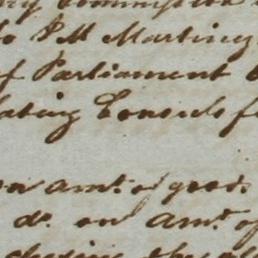 my Commission
to P M Martineg
of Parliament
lating Consuls f
on amt. of goods
do. on amt. of